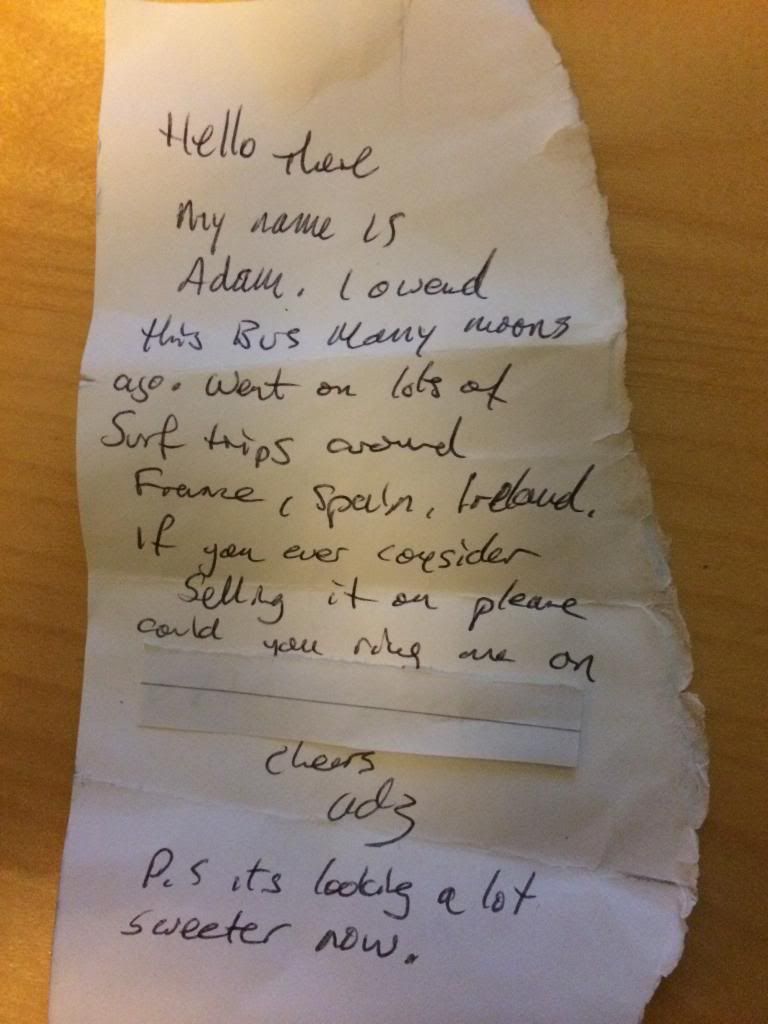 Hello There
My name is
Adam. I owend
this Bus Many moons
ago. Went on lots of
Surf trips around
France, Spain, Ireland.
If you ever consider
Selling it on please
could you ring me on
cheers
adz
P.S its looking a lot
sweeter now.